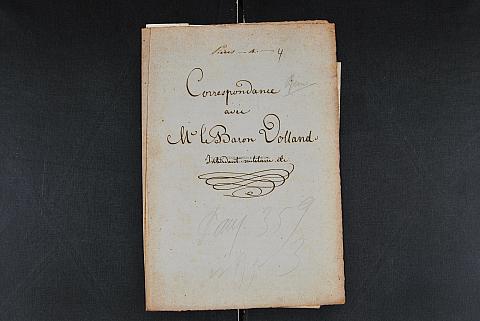 Pièces 4
Correspondance
avec
Mr le Baron Volland
Intendant militaire etc
359
3